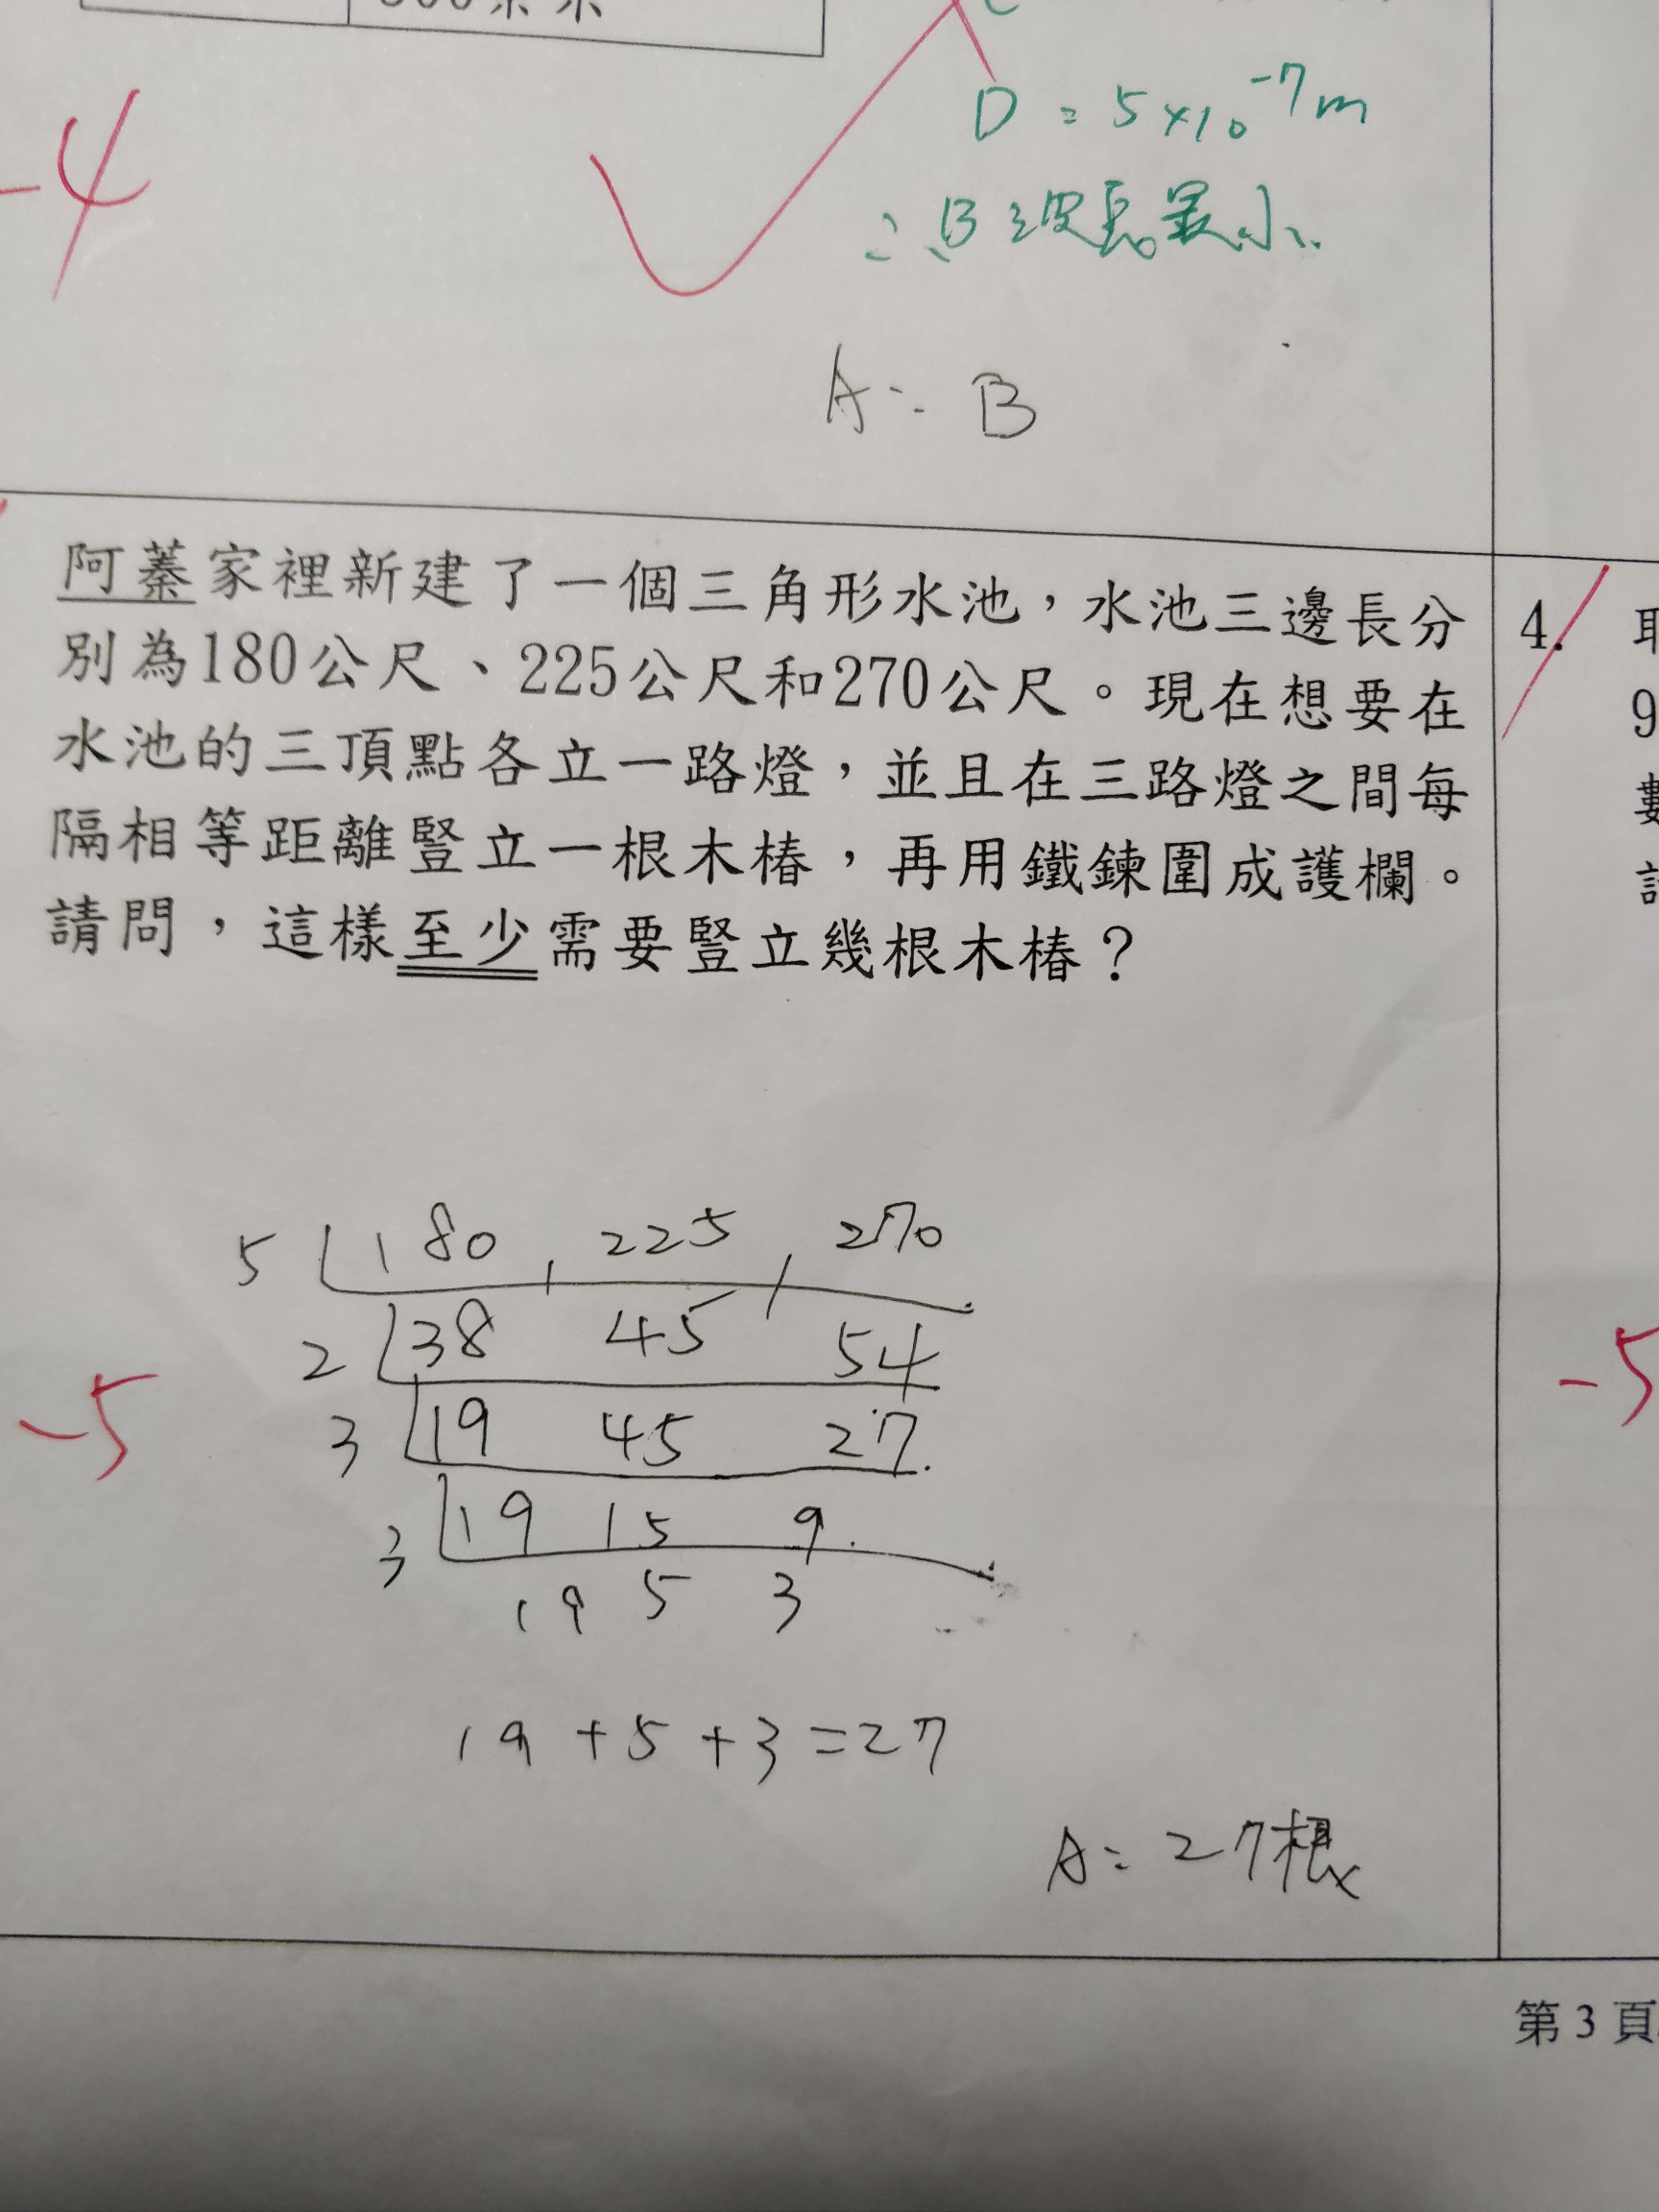 -4
D = 5×10⁻⁷m
∴ B 波長最小
A: B
阿蓁家裡新建了一個三角形水池，水池三邊長分
別為180公尺、225公尺和270公尺。現在想要在
水池的三頂點各立一路燈，並且在三路燈之間每
隔相等距離豎立一根木樁，再用鐵鍊圍成護欄。
請問，這樣至少需要豎立幾根木樁？
4.
9
5 180, 225, 270
2 38 45 54
-5
-5
3 19 45 27
3 19 15 9
19 5 3
19+5+3=27
A: 27根
第3頁